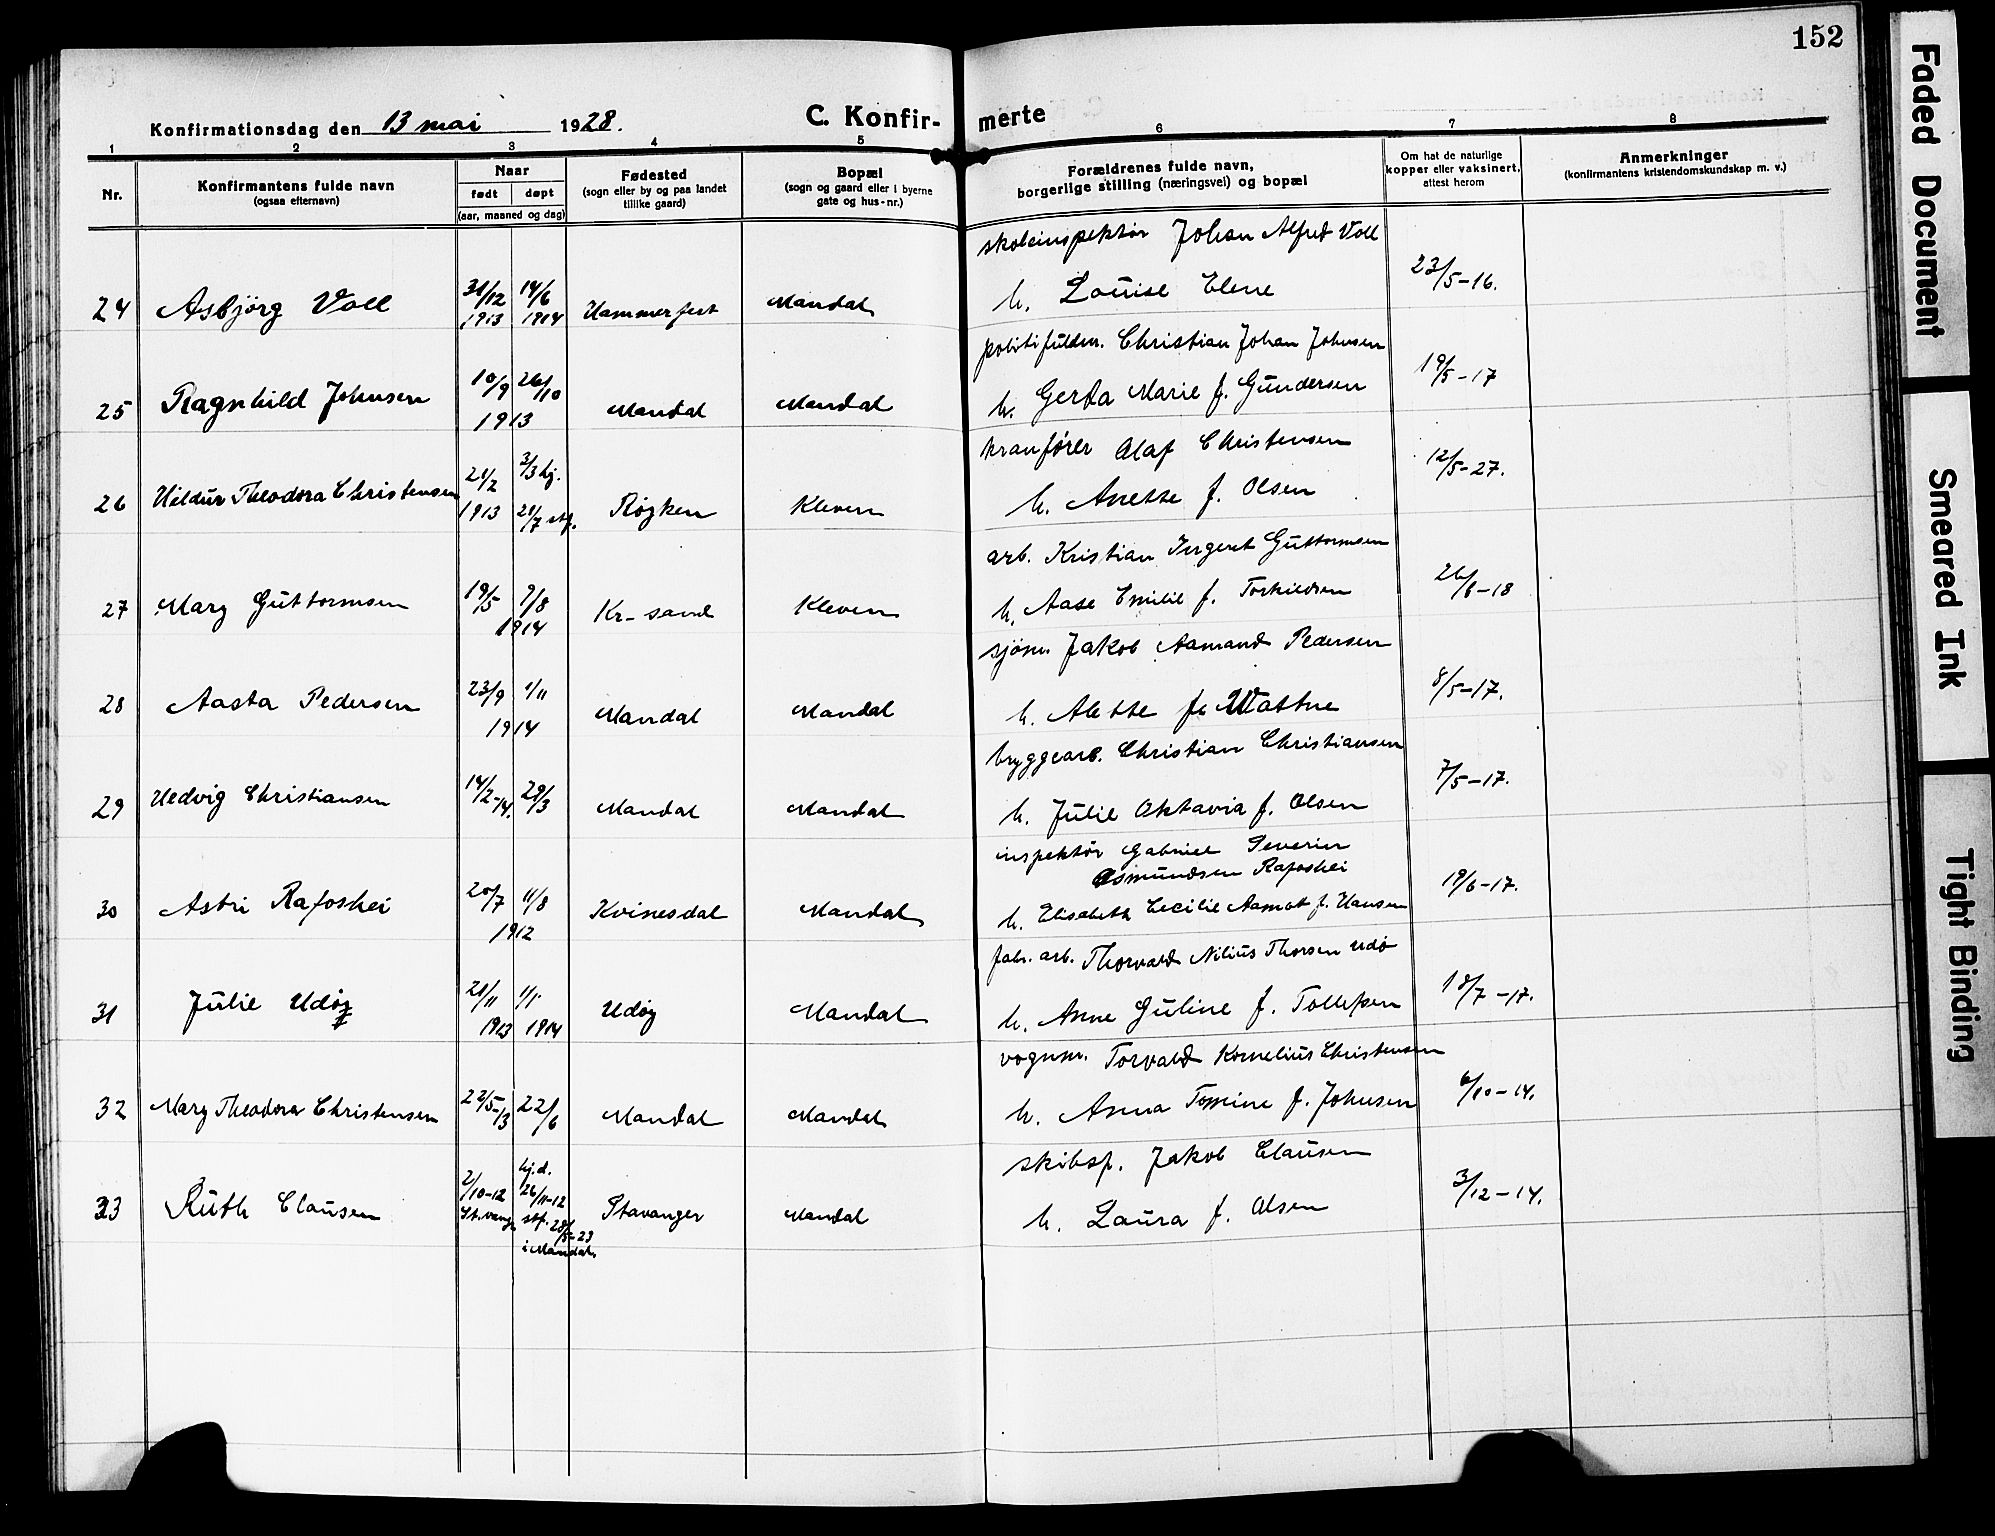 152
Konfirmationsdag den 13 mai 1928.
C. Konfirmerte
1 2 3 4 5 6 7 8
Nr.
Konfirmantens fulde navn
(ogsaa efternavn)
Naar
født døpt
(aar, maaned og dag)
Fødested
(sogn eller by og paa landet
tillike gaard)
Bopæl
(sogn og gaard eller i byerne
gate og hus-nr.)
Forældrenes fulde navn,
borgerlige stilling (næringsvei) og bopæl
Om hat de naturlige
kopper eller vaksinert,
attest herom
Anmerkninger
(konfirmantens kristendomskundskap m. v.)
skoleinspektør Johan Alfred Voll
24 Asbjörg Voll 31/12 1913 14/6 1914 Hammerfest Mandal h. Louise Elene 23/5-16.
politifuldm. Christian Johan Johnsen
25 Ragnhild Johnsen 10/9 26/10 1913 Mandal Mandal h. Gerda Marie f. Gundersen 19/5-17
kranfører Olaf Christensen
26 Hildur Theodora Christensen 21/2 1913 2/3 hj. 21/7 stf. Røyken Kleven h. Anette f. Olsen 12/5-27.
arb. Kristian Ingeret Guttormsen
27 Mary Guttormsen 19/5 7/8 1914 Kr-sand Kleven h. Aase Emilie f. Torkildsen 26/6-18
sjøm. Jakob Aamand Pedersen
28 Aasta Pedersen 23/9 1/11 1914 Mandal Mandal h. Alette f. Wattne 8/5-17.
bryggearb. Christian Christiansen
29 Hedvig Christiansen 14/2-14. 29/3 Mandal Mandal h. Julie Oktavia f. Olsen 7/5-17.
inspektør Gabriel Severin
Osmundsen Rafoshei
30 Astri Rafoshei 20/7 11/8 1912 Kvinesdal Mandal h. Elisabeth Cecilie Aamot f. Hansen 19/6-17.
fabr. arb. Thorvald Nilius Thorsen Udø
31 Julie Udøy 21/11 1913 1/1 1914 Udøy Mandal h. Anne Guline f. Tollefsen 18/7-17.
vognm. Torvald Kornelius Christensen
32 Mary Theodora Christensen 22/5-13 22/6 Mandal Mandal h. Anna Tomine f. Johnsen 6/10-14.
skibsf. Jakob Clausen
33 Ruth Clausen 2/10-12 Stvang. hj.d. 26/11-12 stf. 28/5-23 i Mandal. Stavanger Mandal h. Laura f. Olsen 3/12-14.
Faded Document
Smeared Ink
Tight Binding